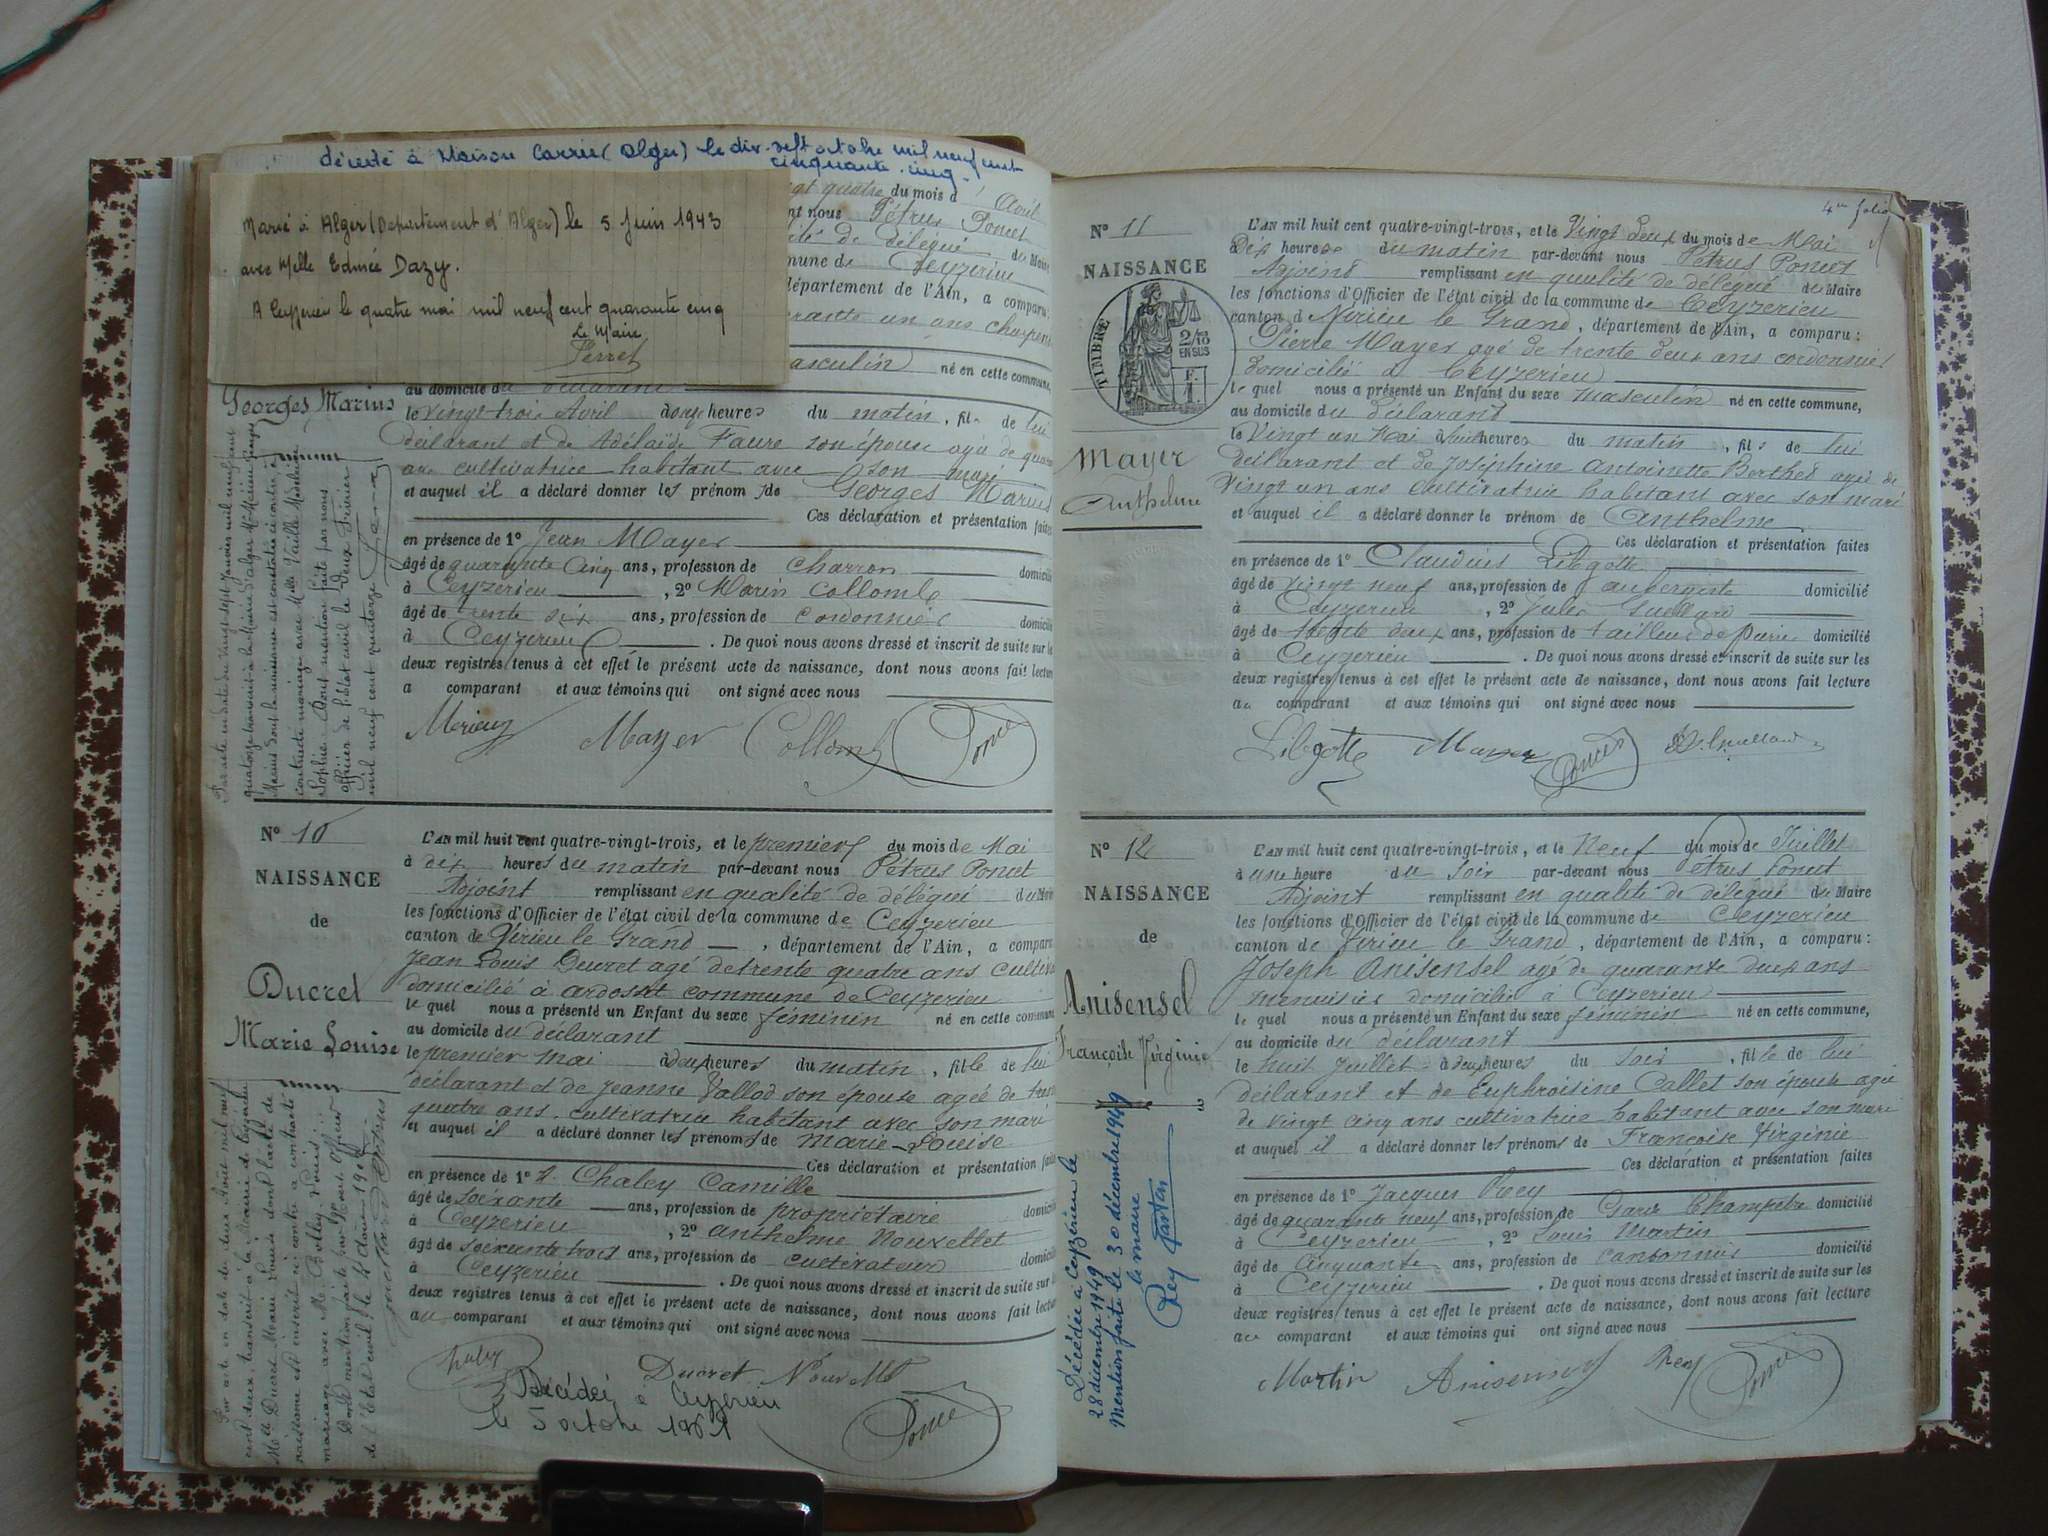 décédé à Maison Carrée (Alger) le dix-sept octobre mil neuf cent
cinquante-cinq.
Marié à Alger (Département d'Alger) le 5 Juin 1943
avec Melle Edmée Dazy.
A Ceyzerieu le quatre mai mil neuf cent quarante cinq
Le Maire
Perret
gt quatre du mois d' Avril
nt nous Pétrus Poncet
ité de délégué du Maire
mune de Ceyzerieu
département de l'Ain, a comparu:
rante un ans charpent
masculin né en cette commune,
au domicile du déclarant
Georges Marius
le vingt trois Avril à onze heures du matin, fils de lui
déclarant et de Adélaïde Faure son épouse agée de quara
ans cultivatrice habitant avec son mari
et auquel il a déclaré donner les prénoms de Georges Marius
Ces déclaration et présentation faites
en présence de 1° Jean Mayer
âgé de quarante cinq ans, profession de charron domicilié
à Ceyzerieu, 2° Marin Collomb
âgé de trente six ans, profession de cordonnier domicilié
à Ceyzerieu. De quoi nous avons dressé et inscrit de suite sur les
deux registres tenus à cet effet le présent acte de naissance, dont nous avons fait lecture
a comparant et aux témoins qui ont signé avec nous
Merieux Mayer Collomb Poncet
Par acte en date du vingt sept janvier mil neuf cent
quatorze transcrit à la Mairie d'Alger Mr Merieux Georges
Marius dont la naissance est constatée ci contre a
contracté mariage avec Melle Vaille Madeleine
Sophie. Dont mention faite par nous
officier de l'état civil le deux Février
mil neuf cent quatorze
N° 10
NAISSANCE
de
Ducret
Marie Louise
L'AN mil huit cent quatre-vingt-trois, et le premier du mois de Mai
à dix heures du matin par-devant nous Pétrus Poncet
Adjoint remplissant en qualité de délégué du Maire
les fonctions d'Officier de l'état civil de la commune de Ceyzerieu
canton de Virieu le Grand, département de l'Ain, a comparu
Jean Louis Ducret agé de trente quatre ans cultiva
domicilié à ardosset commune de Ceyzerieu
le quel nous a présenté un Enfant du sexe féminin né en cette commune
au domicile du déclarant
le premier mai à deux heures du matin, fille de lui
déclarant et de Jeanne Vallod son épouse agée de trente
quatre ans cultivatrice habitant avec son mari
et auquel il a déclaré donner les prénoms de Marie-Louise
Ces déclaration et présentation faites
en présence de 1° Chaley Camille
âgé de soixante ans, profession de propriétaire domicilié
à Ceyzerieu, 2° anthelme Nouvellet
âgé de soixante trois ans, profession de cultivateur domicilié
à Ceyzerieu. De quoi nous avons dressé et inscrit de suite sur les
deux registres tenus à cet effet le présent acte de naissance, dont nous avons fait lecture
au comparant et aux témoins qui ont signé avec nous
Chaley Ducret Poncet
Décédée à Ceyzerieu
le 5 octobre 1961
Par acte en date du deux Août mil neuf
cent deux, transcrit à la Mairie de Ceyzérieu
Melle Ducret Marie Louise dont l'acte de
naissance est inscrit ci contre a contracté
mariage avec Mr Bolley Louis
Dont mention faite par Nous officier
de l'Etat civil le 4 Août 190
4me folio
N° 11
NAISSANCE
TIMBRE
2/10
EN SUS
Mayer
Anthelme
L'AN mil huit cent quatre-vingt-trois, et le Vingt deux du mois de Mai
Dix heures du matin par-devant nous Pétrus Poncet
Adjoint remplissant en qualité de délégué du Maire
les fonctions d'Officier de l'état civil de la commune de Ceyzerieu
canton d Virieu le Grand, département de l'Ain, a comparu:
Pierre Mayer agé de trente deux ans cordonnier
domicilié à Ceyzerieu
le quel nous a présenté un Enfant du sexe masculin né en cette commune,
au domicile du déclarant
le Vingt un Mai à huit heures du matin, fils de lui
déclarant et de Joséphine Antoinette Berthet agée de
Vingt un ans cultivatrice habitant avec son mari
et auquel il a déclaré donner le prénom de Anthelme
Ces déclaration et présentation faites
en présence de 1° Claudius Libgotte
âgé de vingt neuf ans, profession de aubergiste domicilié
à Ceyzerieu, 2° Jules Guellard
âgé de trente deux ans, profession de tailleur de pierre domicilié
à Ceyzerieu. De quoi nous avons dressé et inscrit de suite sur les
deux registres tenus à cet effet le présent acte de naissance, dont nous avons fait lecture
au comparant et aux témoins qui ont signé avec nous
Libgotte Mayer Poncet
N° 12
NAISSANCE
de
Anisensel
Françoise Virginie
L'AN mil huit cent quatre-vingt-trois, et le Neuf du mois de Juillet
à une heure du soir par-devant nous Pétrus Poncet
Adjoint remplissant en qualité de délégué du Maire
les fonctions d'Officier de l'état civil de la commune de Ceyzerieu
canton de Virieu le Grand, département de l'Ain, a comparu:
Joseph Anisensel agé de quarante deux ans
menuisier domicilié à Ceyzerieu
le quel nous a présenté un Enfant du sexe féminin né en cette commune,
au domicile du déclarant
le huit Juillet à deux heures du soir, fille de lui
déclarant et de Euphroisine Callet son épouse agée
de vingt cinq ans cultivatrice habitant avec son mari
et auquel il a déclaré donner les prénoms de Françoise Virginie
Ces déclaration et présentation faites
en présence de 1° Jacques Rey
âgé de quarante neuf ans, profession de Garde Champêtre domicilié
à Ceyzerieu, 2° Louis Martin
âgé de Cinquante ans, profession de cantonnier domicilié
à Ceyzerieu. De quoi nous avons dressé et inscrit de suite sur les
deux registres tenus à cet effet le présent acte de naissance, dont nous avons fait lecture
au comparant et aux témoins qui ont signé avec nous
Martin Anisensel Rey Poncet
Décédée à Ceyzérieu le
28 décembre 1949
Mention faite le 30 décembre 1949
le maire
Rey Gaston